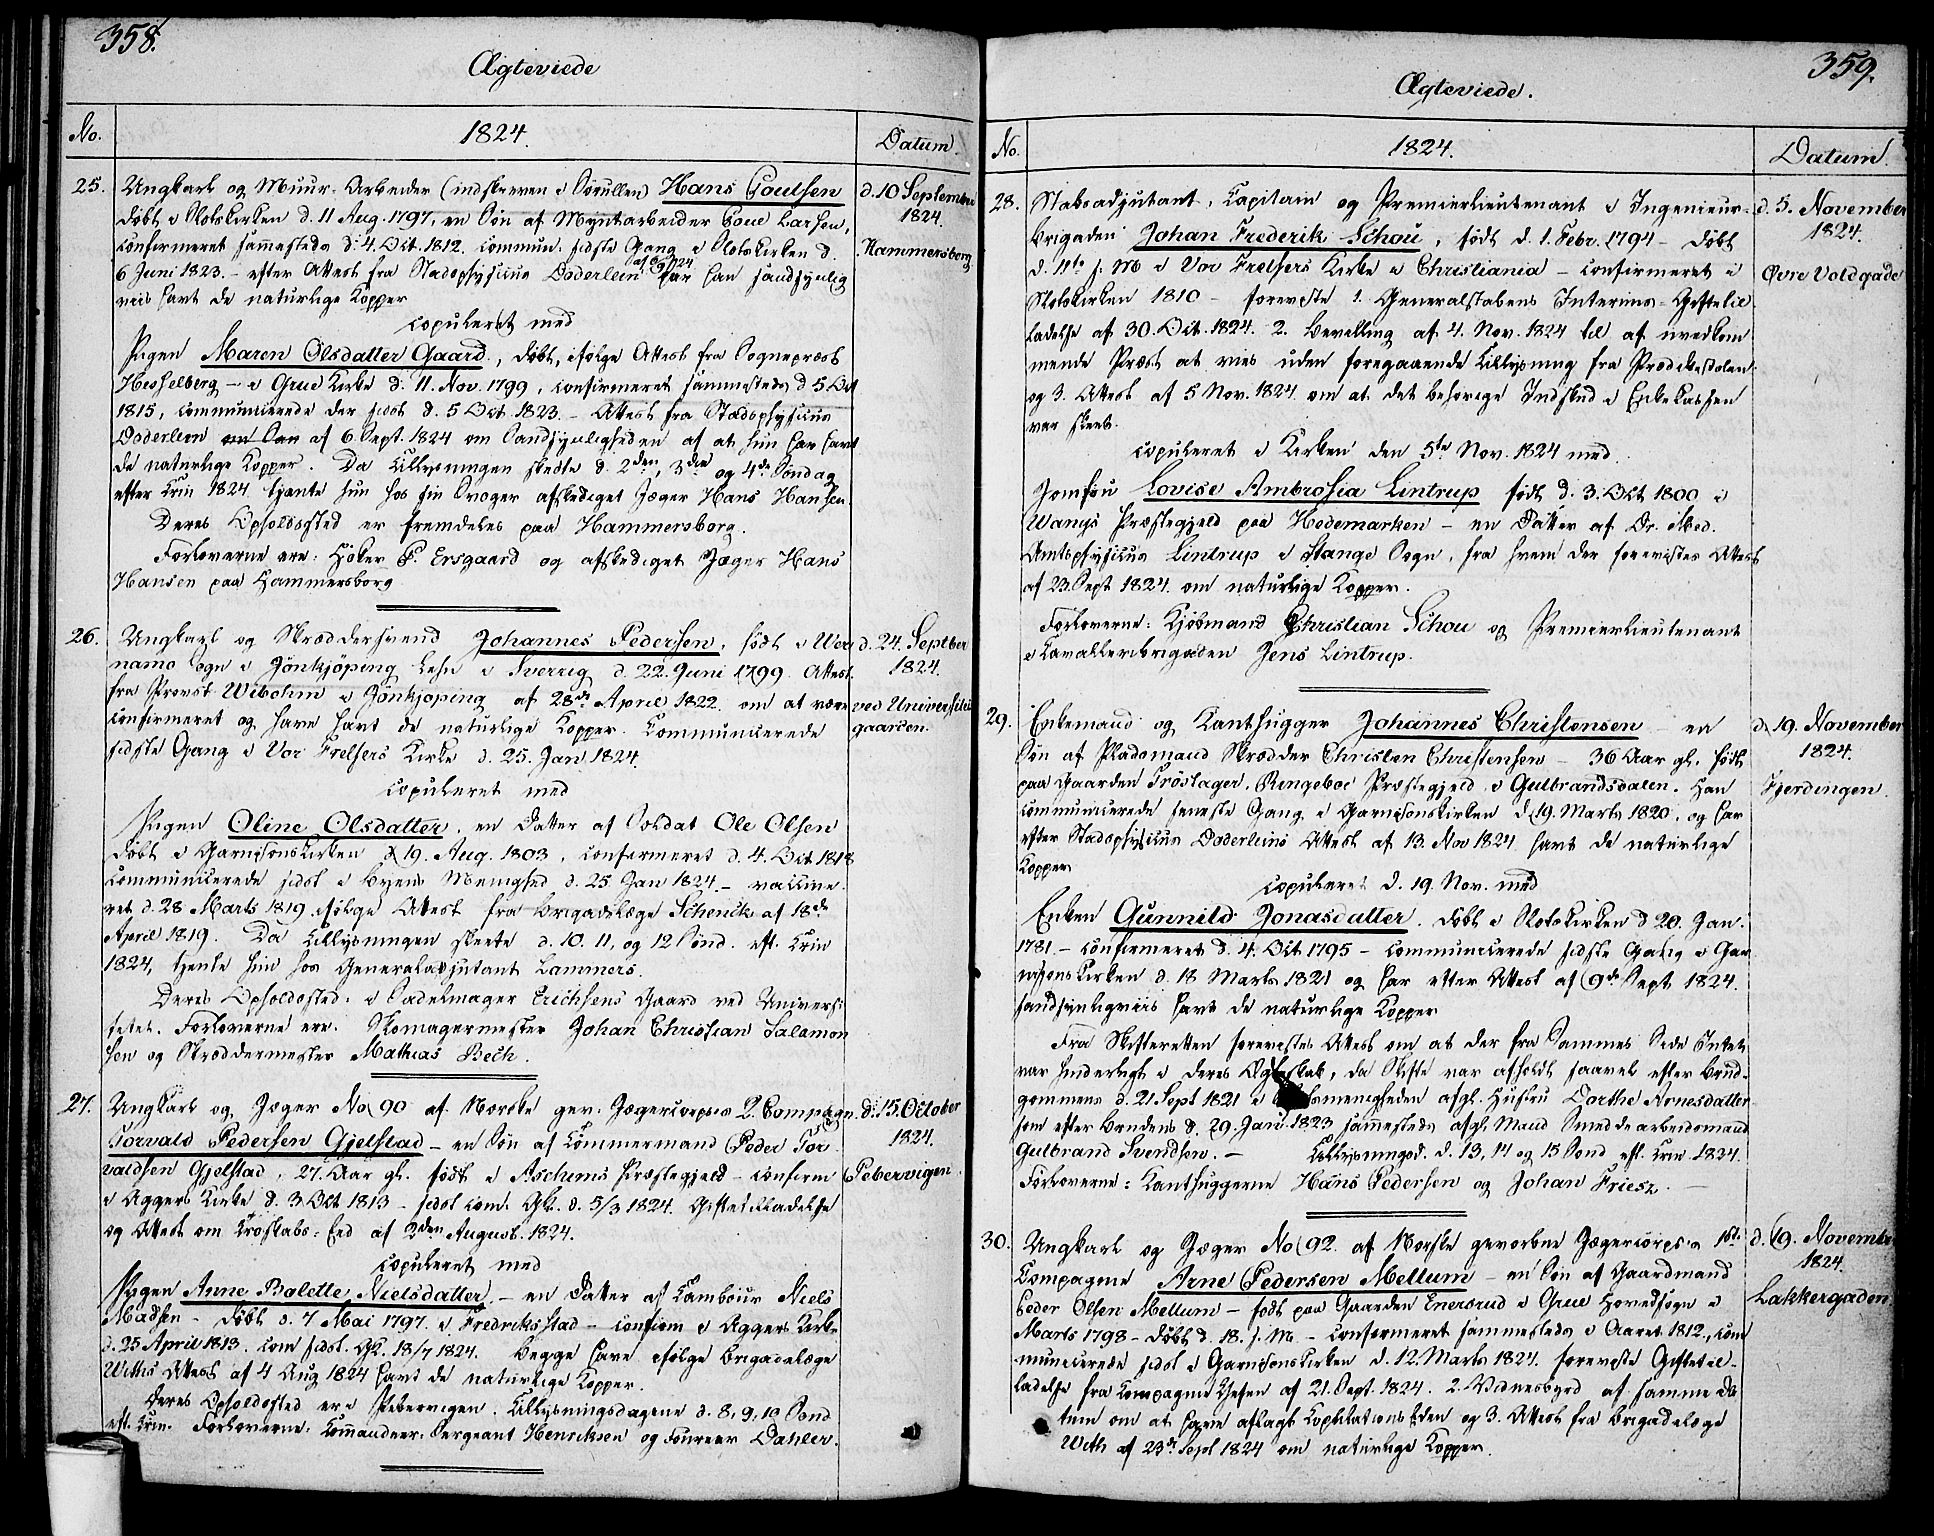 358.
Ægteviede
No.
1824.
Datum.
25.
Ungkarl og Muur-Arbeider (indskreven i Rullen) Hans Poulsen
d. 10 September
1824.
døbt i Slotskirken d. 11 Aug. 1797, en Søn af Myntarbeider Poul Larsen,
confirmeret sammesteds d. 4. Oct. 1812. commun. sidste Gang i Slotskirken d.
Hammersborg
6 Juni 1823. – efter Attest fra Stadsphysicus Døderlein af 6/9 1824 har han sandsynlig
viis havt de naturlige Kopper
copuleret med
Pigen Maren Olsdatter Gaard, døbt, ifølge Attest fra Sognepræst
Hesselberg – i Grue Kirke d. 11. Nov. 1799, confirmeret sammesteds d 5 Oct
1815, communicerede der sidst d. 5 Oct. 1823. – Attest fra Stadsphysicus
Døderlein af 6 Sept. 1824 om Sandsynligheden af at hun har havt
de naturlige Kopper. Da Tillysningen skedte d. 2den, 3die og 4de Søndag
efter Trin 1824 tjente hun hos sin Svoger afskediget Jæger Hans Hansen.
Deres Opholdssted er fremdeles paa Hammersborg.
Forloverne ere: Høker P. Ersgaard og afskediget Jæger Hans
Hansen paa Hammersborg
26.
Ungkarl og Skræddersvend Johannes Pedersen, født i Wer
d. 24. Septber
1824.
namo Sogn i Jönkjöping Lehn i Sverrig d. 22. Juni 1799. Attest
fra Provst Wibohm i Jönkjöping af 28de April 1822. om at være
ved Universitets
gaarden.
confirmeret og have havt de naturlige Kopper. Communicerede
sidste Gang i Vor Frelsers Kirke d. 25. Jan 1824.
copuleret med
Pigen Oline Olsdatter, en Datter af Soldat Ole Olsen
døbt i Garnisonskirken d 19. Aug. 1803, confirmeret d. 4. Oct 1818
communicerede sidst i Byens Menighed d. 25 Jan 1824. – vaccine-
ret d. 28 Marts 1819 ifølge Attest fra Brigadelæge Schenck af 18de
April 1819. Da Tillysningen skeete d. 10. 11, og 12 Sønd. eft. Trin
1824, tjente hun hos Generaladjutant Lammers.
Deres Opholdssted: i Sadelmager Erichsens Gaard ved Universi-
tetet. Forloverne ere: Skomagermester Johan Christian Salamon
sen og Skræddermester Mathias Bech.
27.
Ungkarl og Jæger No 90 af Norske gev. Jægercorpses 2. Compagn.
d. 15. October
1824.
Torvald Pedersen Gjelstad – en Søn af Tømmermand Peder Tor
valdsen Gjelstad, 27. Aar gl. født i Aschems Præstegjeld – confirm
Pebervigen.
i Aggers Kirke d. 3 Oct 1813 – sidst com. Gk. d. 5/3 1824. Giftetilladelse
og Attest om Troskabs-Eed af 2den August. 1824.
copuleret med
Pigen Anne Bolette Nielsdatter. – en Datter af Tambour Niels
Madsen – døbt d. 7 Mai 1797. i Fredriksstad – confirm i Aggers Kirke
d. 25 April 1813. com sidst. Gk. 18/7 1824. Begge have ifølge Brigadelæge
Withs Attest af 4 Aug 1824 havt de naturlige Kopper.
Deres Opholdssted er i Pebervigen. Tillysningsdagene d. 8, 9, 10 Sønd
eft. Trin. Forloverne: Commandeer-Sergeant Henriksen og Foureer Dahler.
359.
Ægteviede.
No.
1824.
Datum
28.
Stabsadjutant, Capitain og Premierlieutenant i Ingenieur-
d. 5. November
1824.
Brigaden Johan Frederik Schou, født d. 1. Febr. 1794 – døbt
d. 11te s. M i Vor Frelsers Kirke i Christiania – confirmeret i
Øvre Voldgade
Slotskirken 1810 – foreviste 1. Generalstabens Interims-Giftetil
ladelse af 30. Oct. 1824. 2. Bevilling af 4. Nov. 1824 til af uvedkom
mende Præst at vies uden foregaaende Tillysning fra Prædikestolen
og 3. Attest af 5 Nov. 1824 om at det behørige Indskud i Enkekassen
var skeet.
copuleret i Kirken den 5te Nov. 1824 med.
Jomfru Lovise Ambrosia Lintrup født d. 3. Oct 1800 i
Wangs Præstegjeld paa Hedemarken – en Datter af Dr. Med.
Amtsphysicus Lintrup i Stange Sogn, fra hvem der forevistes Attest
af 23. Sept 1824. om naturlige Kopper.
Forloverne: Kjøbmand Christian Schou og Premierlieutenant
i Cavalleribrigaden Jens Lintrup.
29.
Enkemand og Tanthugger Johannes Christensen – en
d. 19. November
1824.
Søn af Pladsmand Skrædder Christen Christensen – 36 Aar gl. født
paa Gaarden Frøslager, Ringeboe Præstegjeld i Gulbrandsdalen. Han
Fjerdingen.
communicerede seneste Gang i Garnisonskirken d. 19. Marts 1820, og har
efter Stadsphysicus Døderleins Attest af 13. Nov 1824 havt de naturlige
Kopper
copuleret d. 19. Nov. med
Enken Gunnild Jonasdatter, døbt i Slotskirken d 20. Jan.
1781 – confirmeret d. 4. Oct 1795 – communicerede sidste Gang i Gar
nisonskirken d. 18 Marts 1821 og har efter Attest af 9de Sept 1824.
sandsynligviis havt de naturlige Kopper
Fra Skifteretten forevistes Attest om at der fra Sammes Side Intet
var hinderligt i deres Ægteskab, da Skifte var afholdt saavel efter Brud-
gommens d. 21 Sept 1821 i menigheden afg. Hustru Dorthe Arnesdatter
som efter Brudens d. 29. Jan. 1823 sammesteds afg. Mand Smeddearbeidsmand
Gulbrand Svendsen. – Tillysningsd. d. 13, 14 og 15 Sønd eft. Trin 1824.
Forloverne: Tanthuggerne Hans Pedersen og Johan Friesz. –
30.
Ungkarl og Jæger No 92. af Norske gevorbne Jægercorps's 1ste
d. 19. November
1824.
Compagnie Arne Pedersen Mellum – en Søn af Gaardmand
Peder Olsen Mellum – født paa Gaarden Enersrud i Grue Hovedsogn i
Lakkergaden
Marts 1798 – døbt d. 18. s. M. – confirmeret sammesteds i Aaret 1812, com
municerede sidst i Garnisonskirken d. 12. Marts 1824. foreviste Giftetil-
ladelse fra Compagnie Chefen af 21. Sept. 1824. 2. Vidnesbyrd af samme Da
tum om at have aflagt Copulations Eden og 3. Attest fra Brigadelæge
With af 23de Sept 1824 om naturlige Kopper.